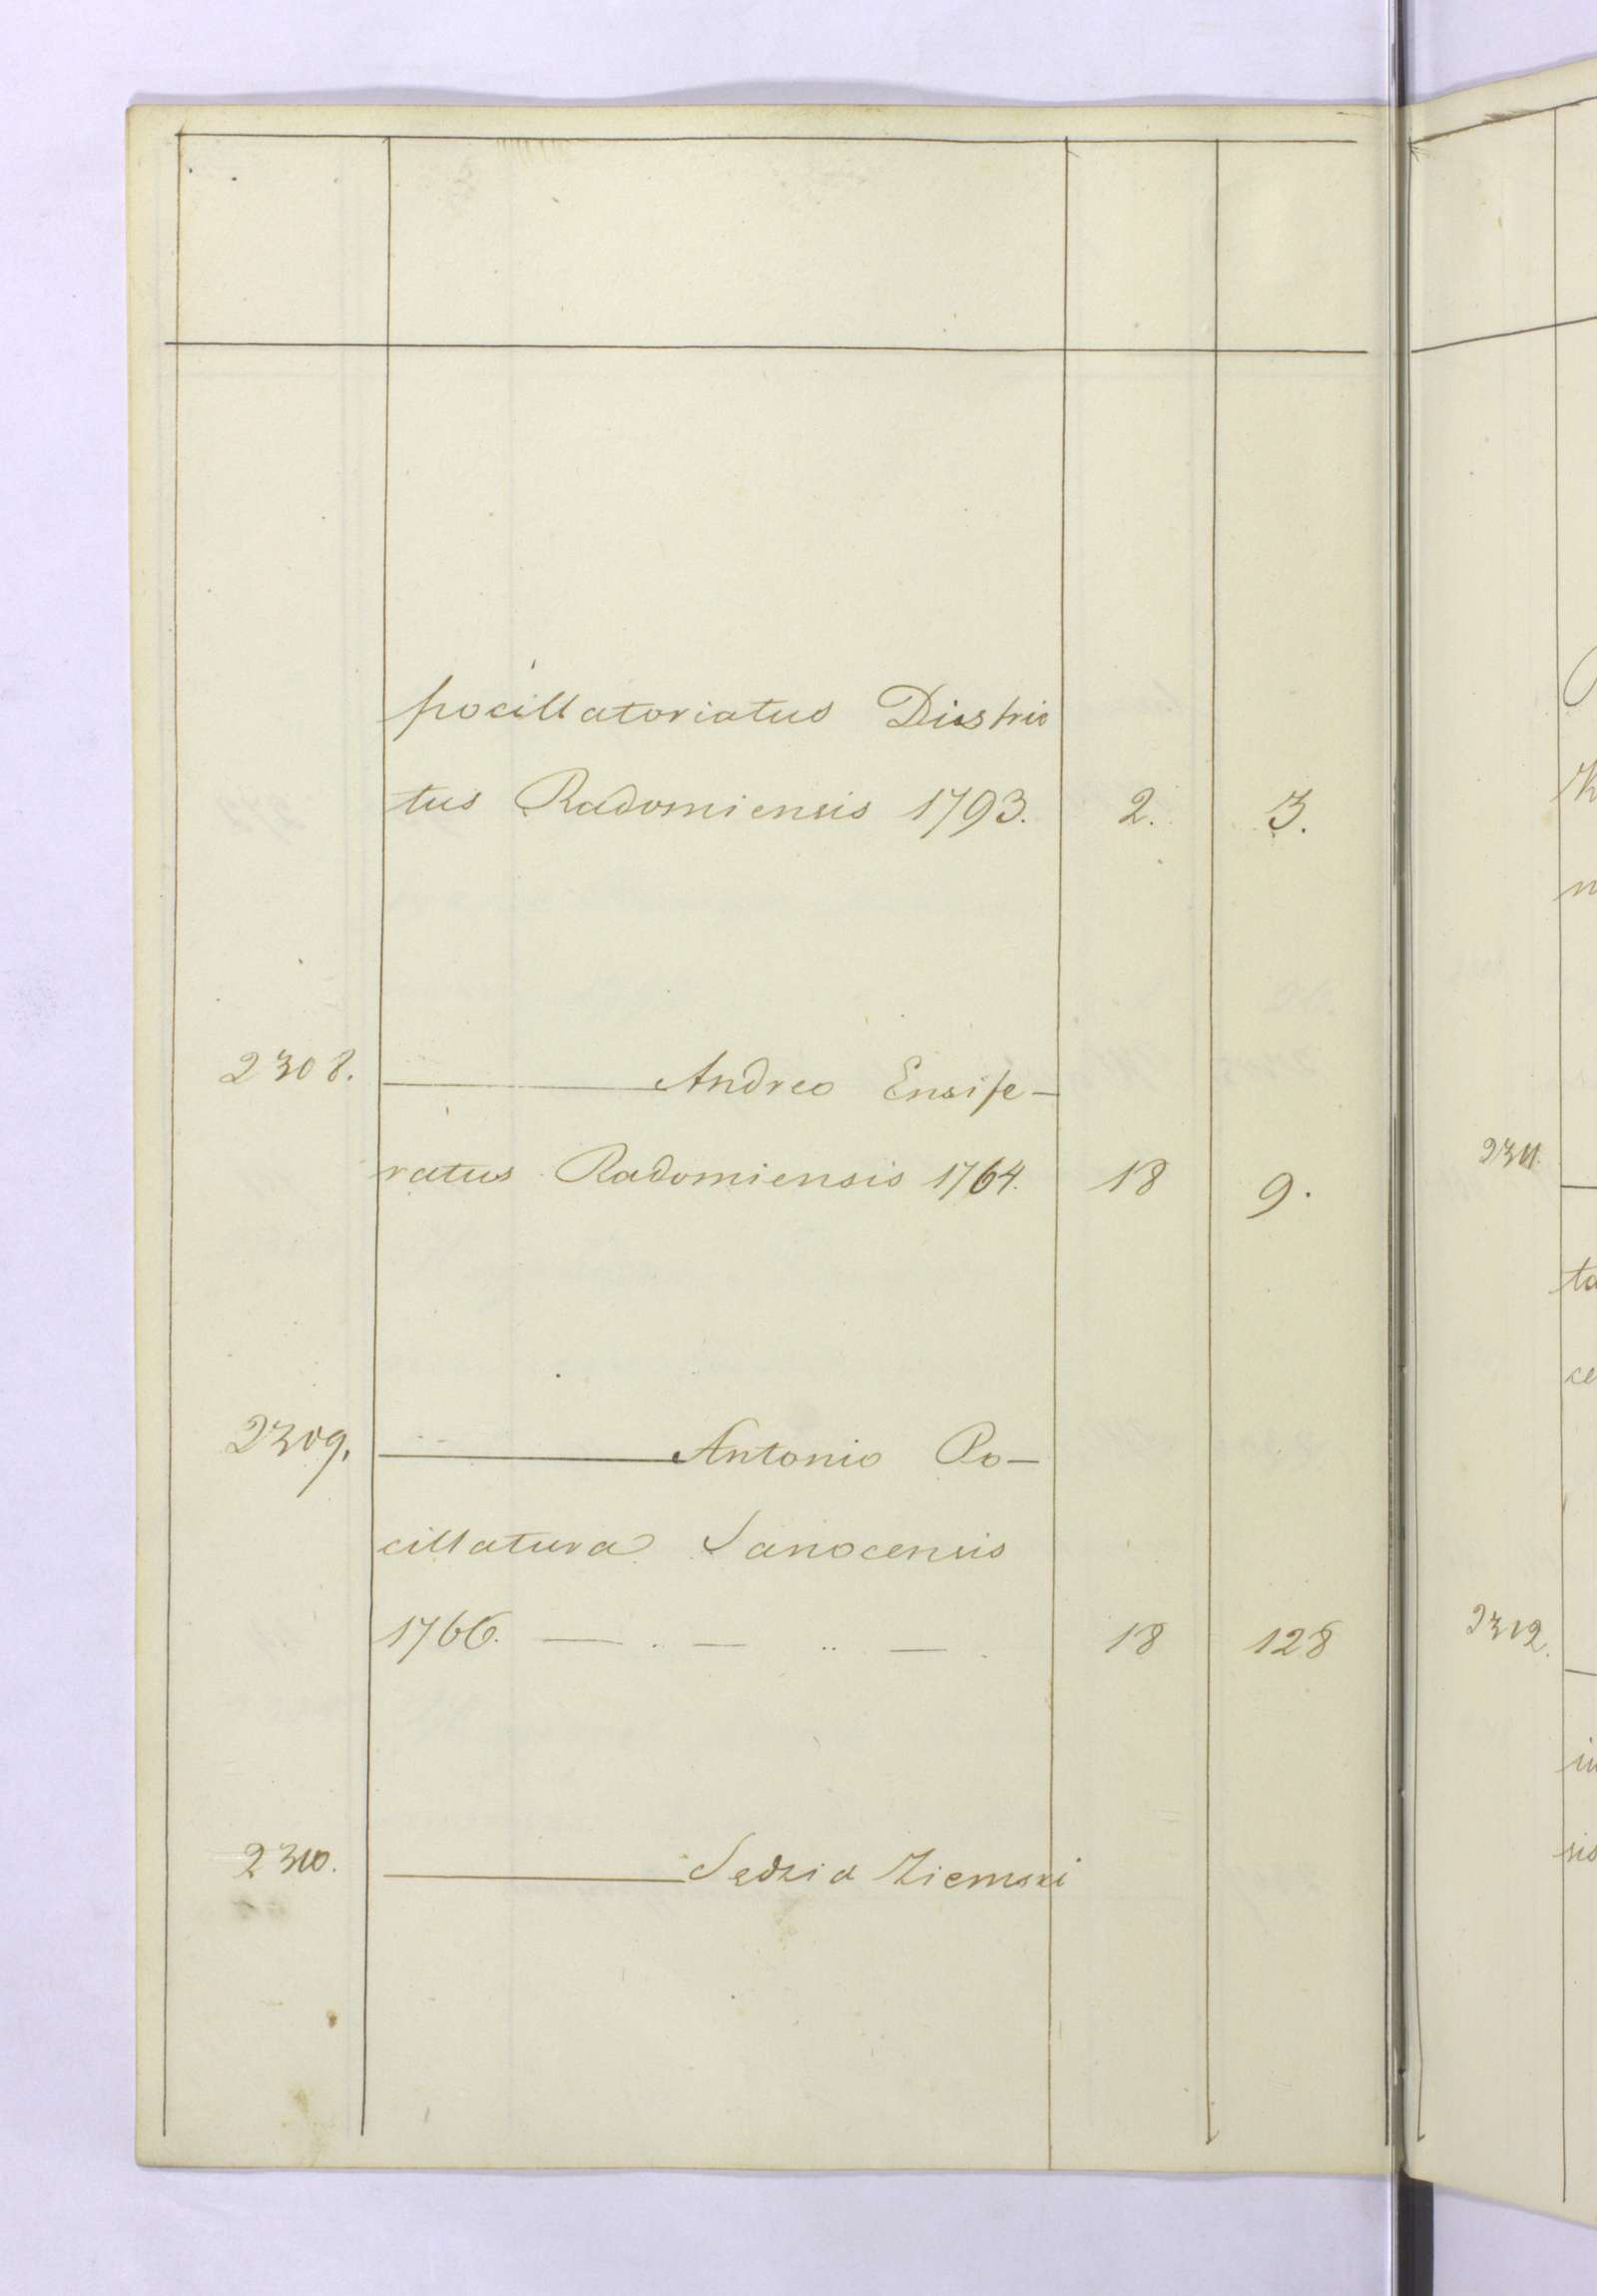 pocillatoriatus Distric
tus Radomiensis 1793. 2. 3.
2308. ——— Andreo Ensife-
ratus Radomiensis 1764. 18 9.
2309. ——— Antonio Po-
cillatura Sanocensis
1766. — . — .. — . 18 128
2310. ——— Sędzia Ziemski
2311.
ta
ce
2312.